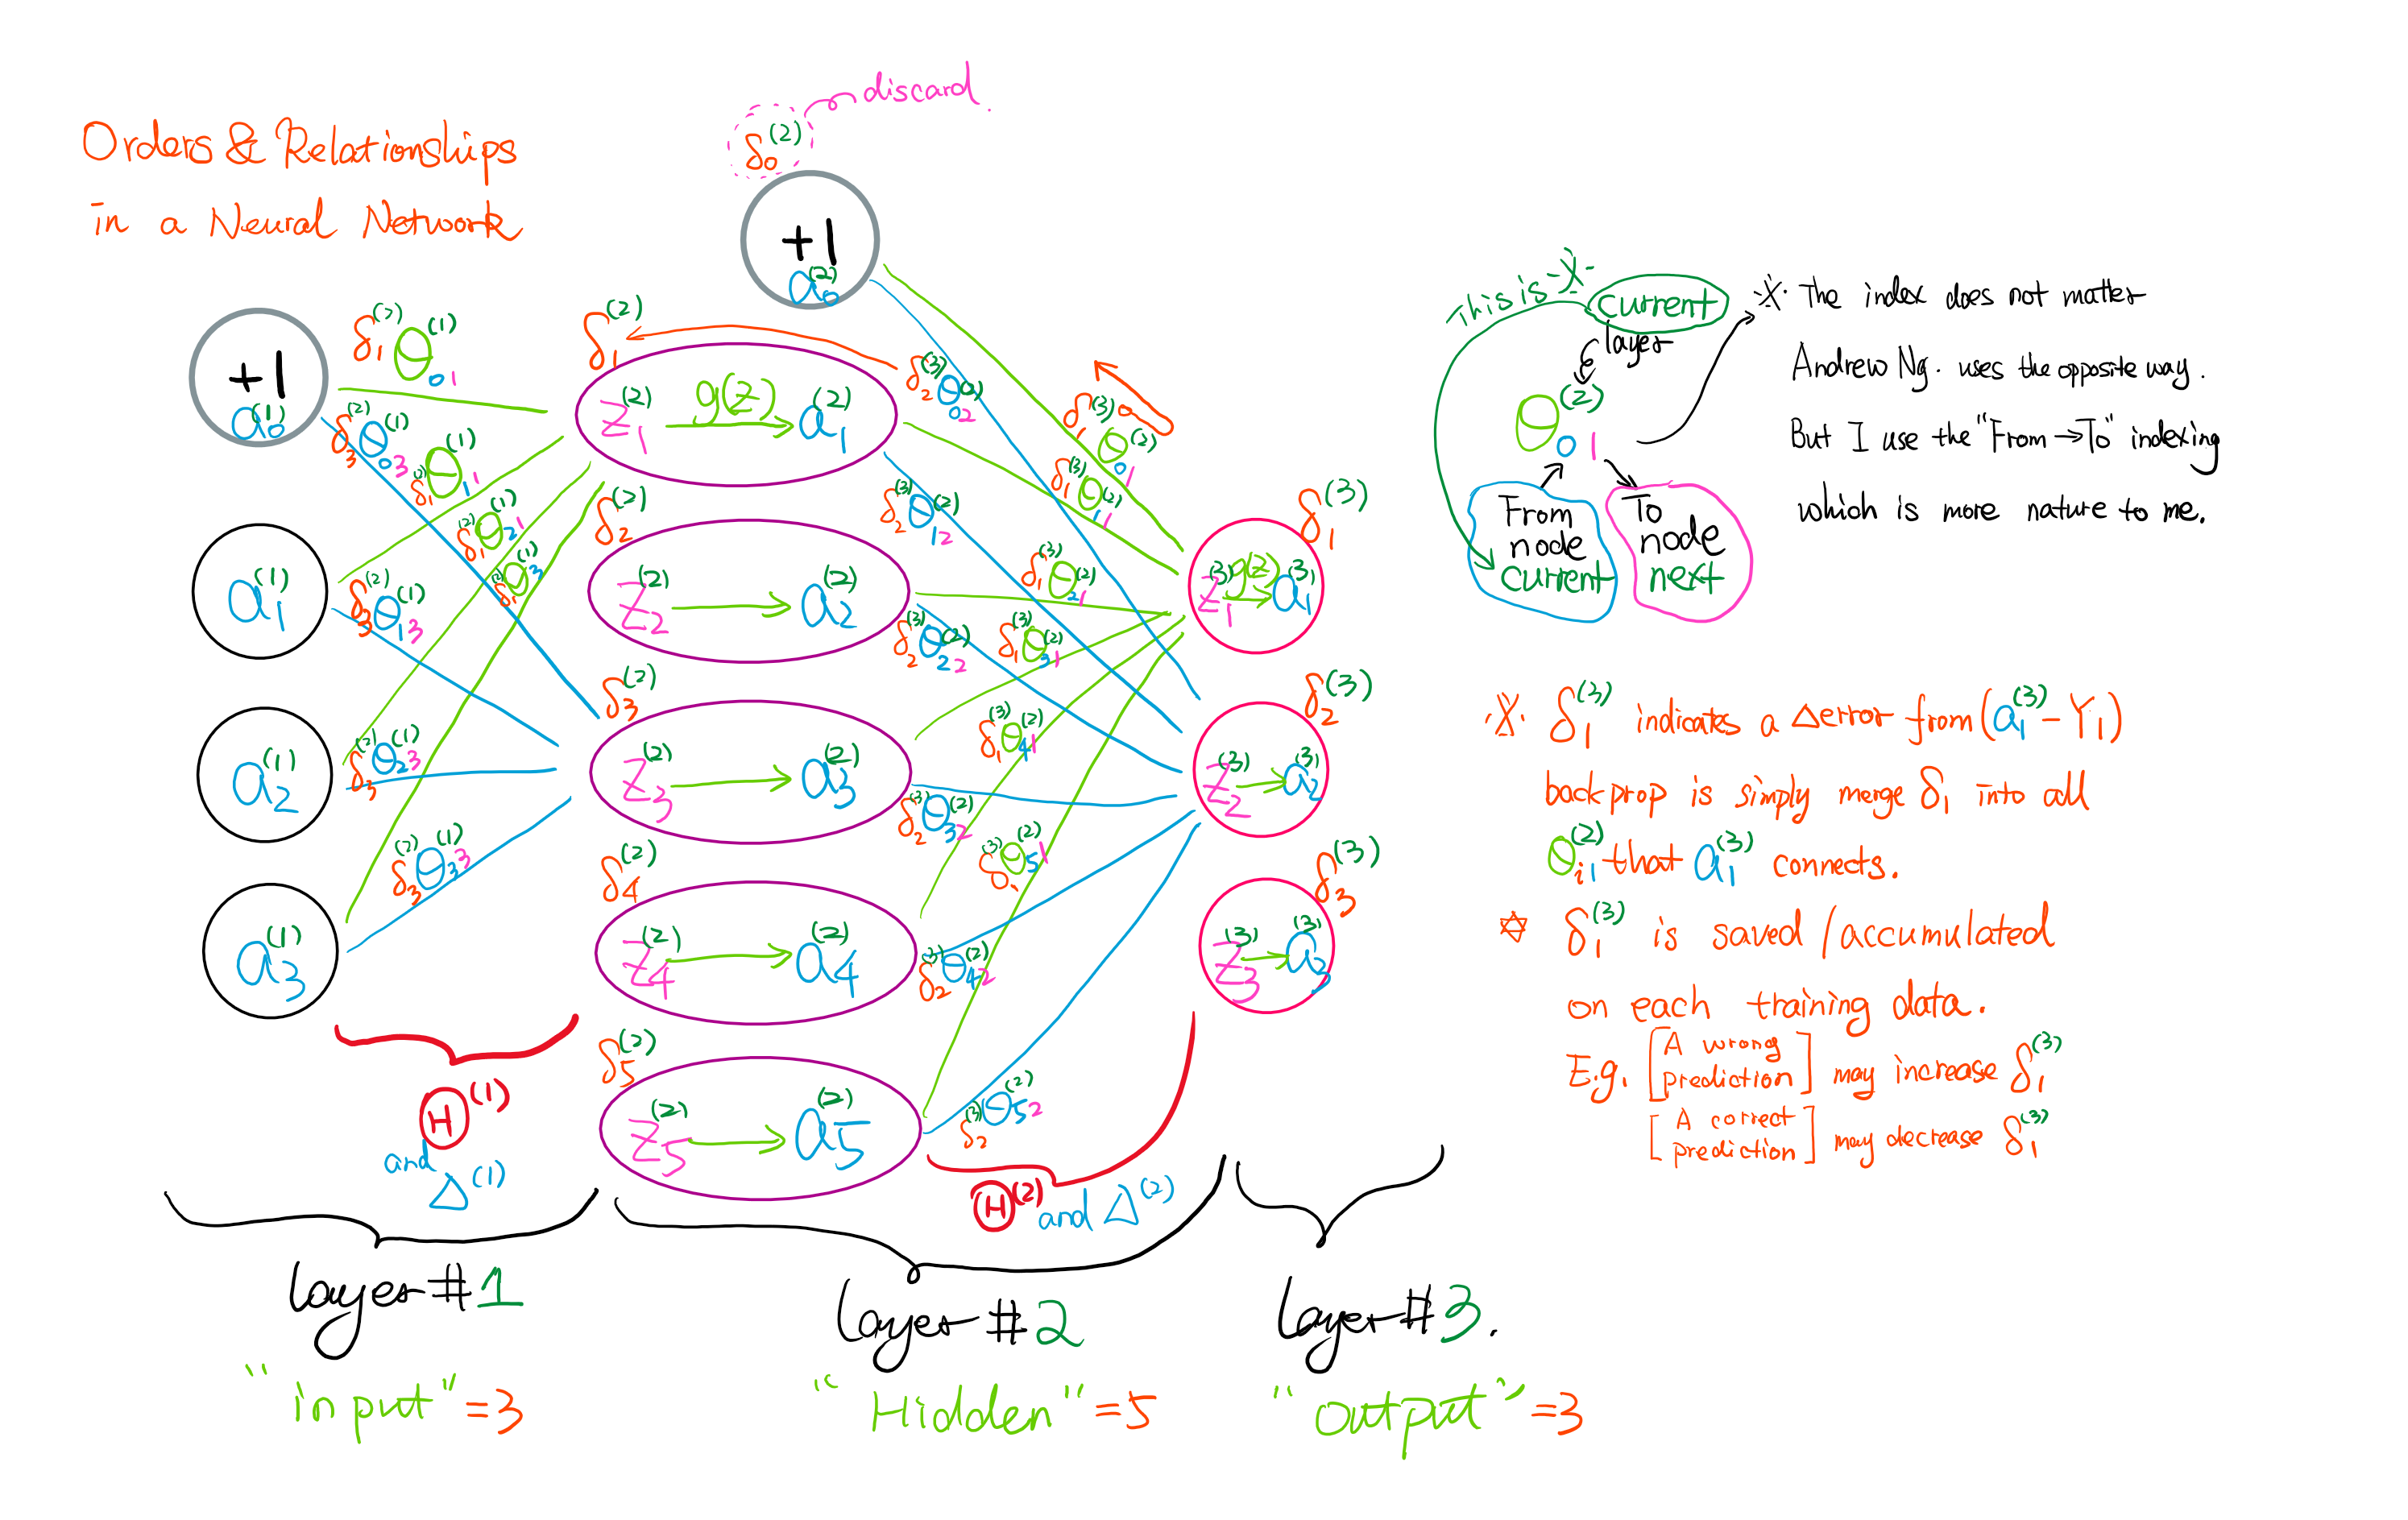 Orders & Relationships
in a Neural Network
discard.
δ₀⁽²⁾
+1
a₀⁽²⁾
+1
a₀⁽¹⁾
a₁⁽¹⁾
a₂⁽¹⁾
a₃⁽¹⁾
δ₁⁽²⁾ θ₀₁⁽¹⁾
δ₃⁽²⁾ θ₀₃⁽¹⁾
δ₁⁽²⁾ θ₁₁⁽¹⁾
δ₁⁽²⁾ θ₂₁⁽¹⁾
δ₁⁽²⁾ θ₃⁽¹⁾
δ₃⁽²⁾ θ₁₃⁽¹⁾
δ₃⁽²⁾ θ₂₃⁽¹⁾
δ₃⁽²⁾ θ₃₃⁽¹⁾
Θ⁽¹⁾
and
Δ⁽¹⁾
δ₁⁽²⁾
z₁⁽²⁾ g(z) a₁⁽²⁾
δ₂⁽²⁾
z₂⁽²⁾ a₂⁽²⁾
δ₃⁽²⁾
z₃⁽²⁾ a₃⁽²⁾
δ₄⁽²⁾
z₄⁽²⁾ a₄⁽²⁾
δ₅⁽²⁾
z₅⁽²⁾ a₅⁽²⁾
δ₂⁽³⁾ θ₀₂⁽²⁾
δ₁⁽³⁾ θ₀₁⁽²⁾
δ₁⁽³⁾ θ₁₁⁽²⁾
δ₂⁽³⁾ θ₁₂⁽²⁾
δ₁⁽³⁾ θ₂₁⁽²⁾
δ₂⁽³⁾ θ₂₂⁽²⁾
δ₁⁽³⁾ θ₃₁⁽²⁾
δ₁⁽³⁾ θ₄₁⁽²⁾
δ₂⁽³⁾ θ₃₂⁽²⁾
δ₁⁽³⁾ θ₅₁⁽²⁾
δ₂⁽³⁾ θ₄₂⁽²⁾
δ₂⁽³⁾ θ₅₂⁽²⁾
Θ⁽²⁾ and Δ⁽²⁾
δ₁⁽³⁾
z₁⁽³⁾ g(z) a₁⁽³⁾
δ₂⁽³⁾
z₂⁽³⁾ a₂⁽³⁾
δ₃⁽³⁾
z₃⁽³⁾ a₃⁽³⁾
This is ※
current
layer
θ₀₁⁽²⁾
From
node
current
To
node
next
※ The index does not matter
Andrew Ng. uses the opposite way.
But I use the "From→To" indexing
which is more nature to me.
※ δ₁⁽³⁾ indicates a Δerror from (a₁⁽³⁾ - Y₁)
backprop is simply merge δ₁ into all
θᵢ₁⁽²⁾ that a₁⁽³⁾ connects.
✡ δ₁⁽³⁾ is saved / accumulated
on each training data.
E.g. [A wrong prediction] may increase δ₁⁽³⁾
[A correct prediction] may decrease δ₁⁽³⁾
layer #1
"input" =3
layer #2
"Hidden" =5
layer #3.
"output" =3